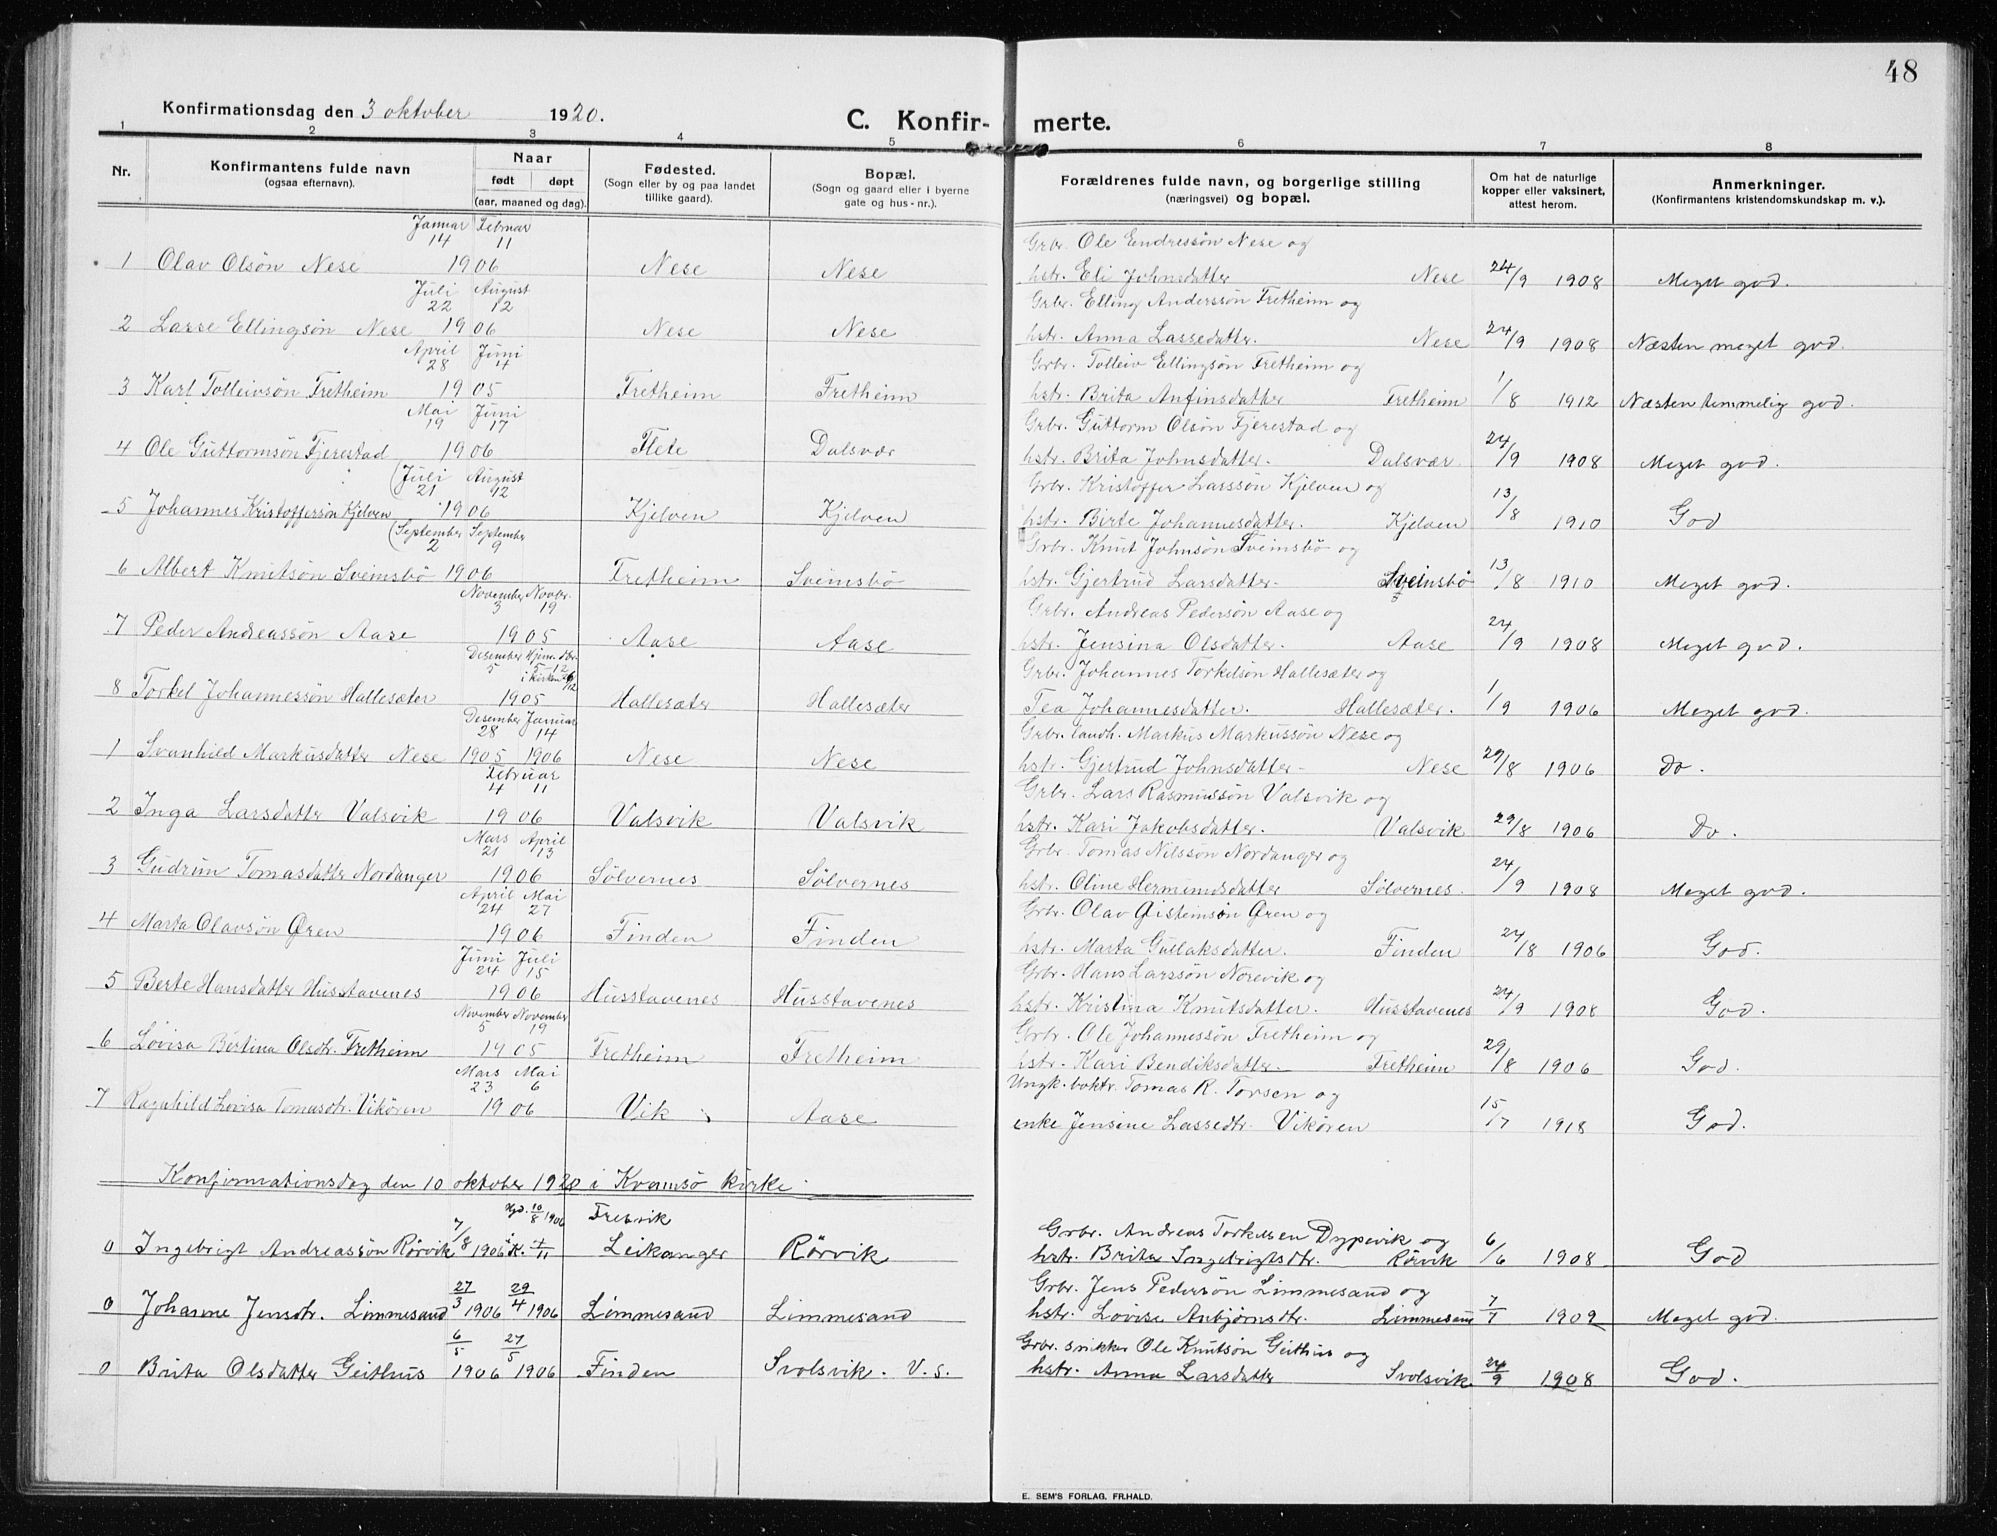 48
Konfirmationsdag den 3 oktober 1920.
C. Konfir- merte.
1 2 3 4 5 6 7 8
Nr.
Konfirmantens fulde navn
(ogsaa efternavn).
Naar
født døpt
(aar, maaned og dag).
Fødested.
(Sogn eller by og paa landet
tillike gaard).
Bopæl.
(Sogn og gaard eller i byerne
gate og hus-nr.).
Forældrenes fulde navn, og borgerlige stilling
(næringsvei) og bopæl.
Om hat de naturlige
kopper eller vaksinert,
attest herom.
Anmerkninger.
(Konfirmantens kristendomskundskap m. v.).
Januar Februar
14 11
Grbr. Ole Endressøn Nese og
1 Olav Olsøn Nese 1906 Nese Nese hstr. Eli Johnsdatter Nese 24/9 1908 Meget god.
Juli August
22 12
Grbr. Elling Anderssøn Fretheim og
2 Lasse Ellingsøn Nese 1906 Nese Nese hstr. Anna Lassedatter. Nese 24/9 1908 Næsten meget god.
April Juni
28 4
Grbr. Tolleiv Ellingsøn Fretheim og
3 Karl Tolleivsøn Fretheim 1905 Fretheim Fretheim hstr. Brita Anfinsdatter Fretheim 1/8 1912 Næsten temmelig god.
Mai Juni
19 17
Grbr. Guttorm Olsøn Fjerestad og
4 Ole Guttormsøn Fjerestad 1906 Flete Dalsvær hstr. Brita Johnsdatter. Dalsvær. 24/9 1908 Meget god.
(Juli August
21 12
Grbr. Kristoffer Larssøn Kjelven og
5 Johannes Kristoffersøn Kjelven 1906 Kjelven Kjelven hstr. Birte Johannesdatter. Kjelven 13/8 1910 God
(September September
2 9
Grbr. Knut Johnsøn Sveinsbø og
6 Albert Knutsøn Sveinsbø 1906 Fretheim Sveinsbø hstr. Gjertrud Larsdatter. Sveinsbø 13/8 1910 Meget god.
November Novbr.
3 19
Grbr. Andreas Pedersøn Aase og
7 Peder Andreassøn Aase 1905 Aase Aase hstr. Jensina Olsdatter. Aase 24/9 1908 Meget god.
Desember Hjem. dbr.
5 5-12
i kirken 26/12
Grbr. Johannes Torkelsøn Hallesæter og
8 Torkel Johannessøn Hallesæter 1905 Hallesæter Hallesæter Tea Johannesdatter. Hallesæter. 1/9 1906 Meget god.
Desember Januar
28 14
Grbr. landh. Markus Markussøn Nese og
1 Svanhild Markusdatter Nese 1905 1906 Nese Nese hstr. Gjertrud Johnsdatter - Nese 29/8 1906 Do.
Februar
4 11
Grbr. Lars Rasmussøn Valsvik og
2 Inga Larsdatter Valsvik 1906 Valsvik Valsvik hstr. Kari Jakobsdatter. Valsvik 29/8 1906 Do.
Mars April
21 13
Grbr. Tomas Nilssøn Nordanger og
3 Gudrun Tomasdatter Nordanger 1906 Sølvernes Sølvernes hstr. Oline Hermundsdatter Sølvernes. 24/9 1908 Meget god.
April Mai
24 27
Grbr. Olav Øisteinsøn Øren og
4 Marta Olavsøn Øren 1906 Finden Finden hstr. Marta Gullaksdatter. Finden 24/8 1906 God.
Juni Juli
24 15
Grbr. Hans Larssøn Norevik og
5 Berte Hansdatter Husstavenes 1906 Husstavenes Husstavenes hstr. Kristina Knutsdatter. Husstavenes 24/9 1908 God.
November November
5 19
Grbr. Ole Johannessøn Fretheim og
6 Lovisa Bertina Olsdtr. Fretheim 1905 Fretheim Fretheim hstr. Kari Bendiksdatter. Fretheim 29/8 1906 God.
Mars Mai
23 6
Ungk. boktr. Tomas R. Torsen og
7 Ragnhild Lovisa Tomasdtr. Vikøren 1906 Vik Aase enke Jensine Lassedtr. Vikøren 15/7 1918 God.
Konfirmationsdag den 10 oktober 1920 i Kvamsø kirke.
Hjd. 10/8 1906 Fresvik
Grbr. Andreas Torkelsen Dypevik og
0 Ingebrigt Andreassøn Rørvik 7/8 1906 i K. 4/11 Leikanger Rørvik hstr. Brita Ingebrigtsdtr. Rørvik 6/6 1908 God
Grbr. Jens Pedersøn Limmesand og
0 Johanne Jensdtr. Limmesand 27/3 1906 29/4 1906 Limmesand Limmesand hstr. Lovise Anbjørnsdtr. Limmesand 7/7 1909 Meget god.
Grbr. snikker Ole Knutsøn Geithus og
0 Brita Olsdatter Geithus 6/5 1906 27/5 1906 Finden Svolsvik. V.S. hstr. Anna Larsdatter Svolsvik 24/9 1908 God.
E. SEM'S FORLAG, FR.HALD.